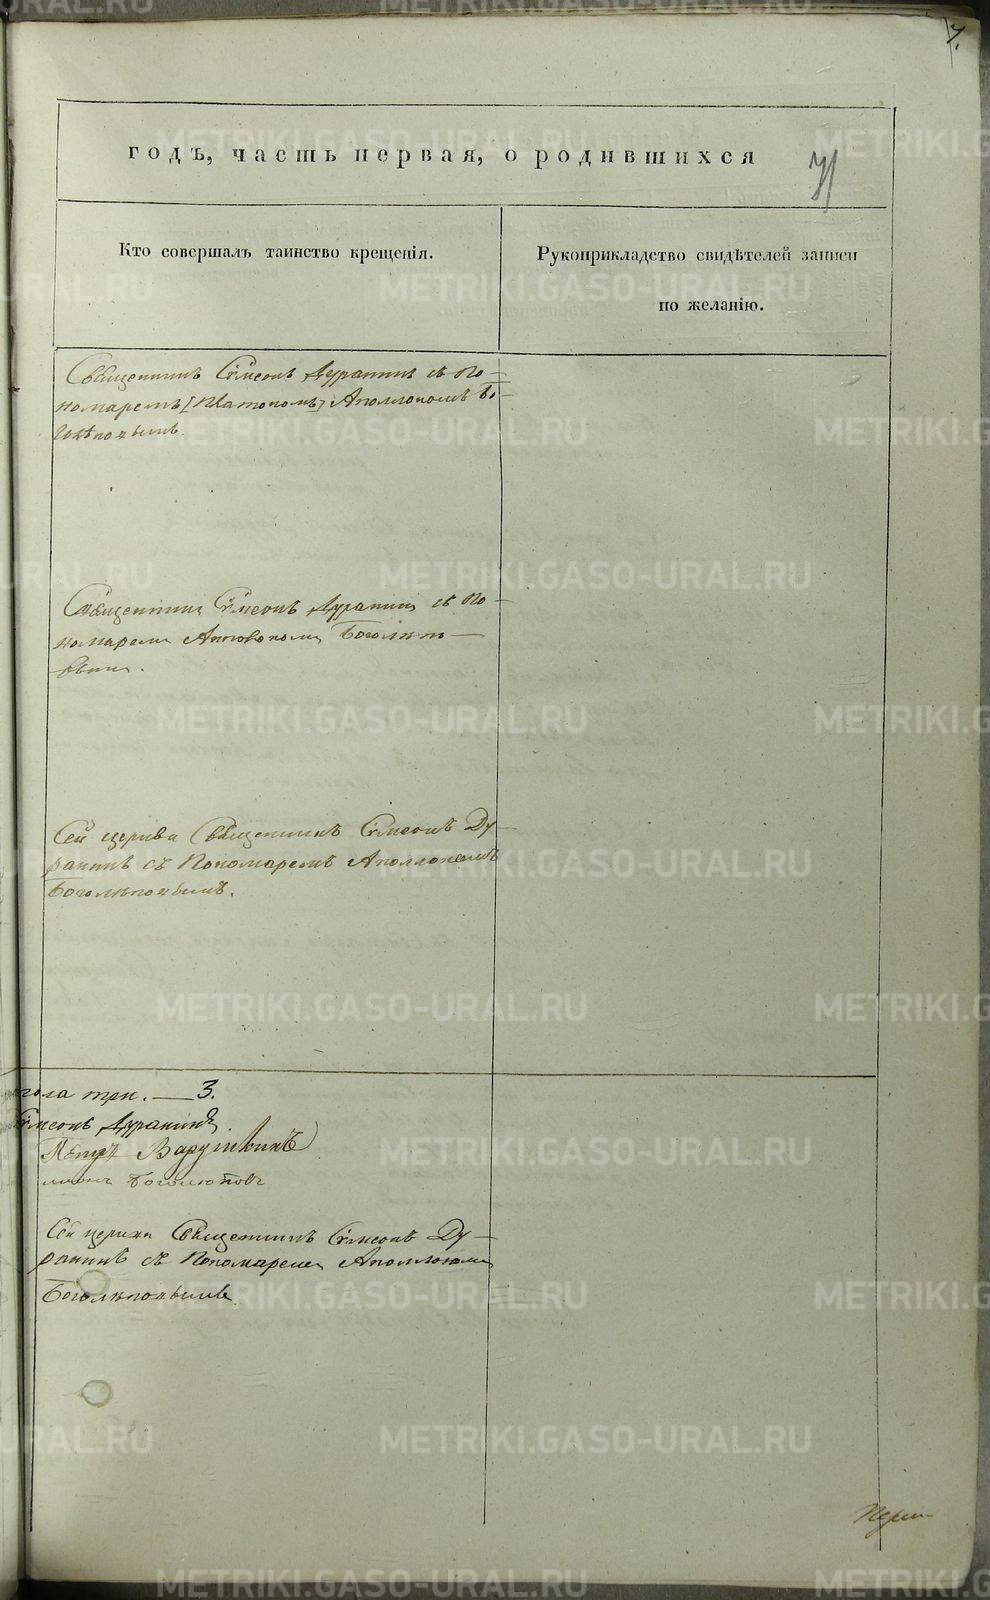 7.
годъ, часть первая, о родившихся
71
Кто совершалъ таинство крещенія.
Рукоприкладство свидѣтелей записи
по желанію.
Священникъ Сѵмеонъ Дуранинъ съ По-
номаремъ Аполлономъ Бо-
голѣповымъ
Священникъ Сѵмеонъ Дуранинъ съ По-
номаремъ Боголѣпо-
вымъ.
Сей церкви Священникъ Сѵмеонъ Ду-
ранинъ съ Пономаремъ Аполлономъ
Боголѣповымъ.
три. — 3.
Сѵмеонъ Дуранинъ.
Петръ Варушкинъ
Сей церкви Священникъ Сѵмеонъ Ду-
ранинъ съ Пономаремъ Аполлономъ
Боголѣповымъ
METRIKI.GASO-URAL.RU